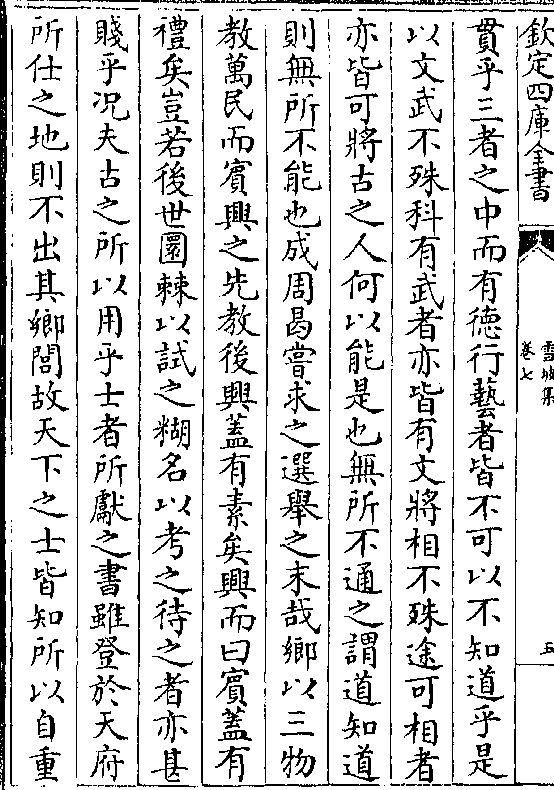 欽定四庫全書
雪坡集
卷七
五
貫乎三者之中而有德行藝者皆不可以不知道乎是
以文武不殊科有武者亦皆有文將相不殊途可相者
亦皆可將古之人何以能是也無所不通之謂道知道
則無所不能也成周曷嘗求之選舉之末哉鄉以三物
教萬民而賓興之先教後興蓋有素矣興而曰賓蓋有
禮矣豈若後世圜棘以試之糊名以考之待之者亦甚
賤乎况夫古之所以用乎士者所獻之書雖登於天府
所仕之地則不出其鄉閭故天下之士皆知所以自重